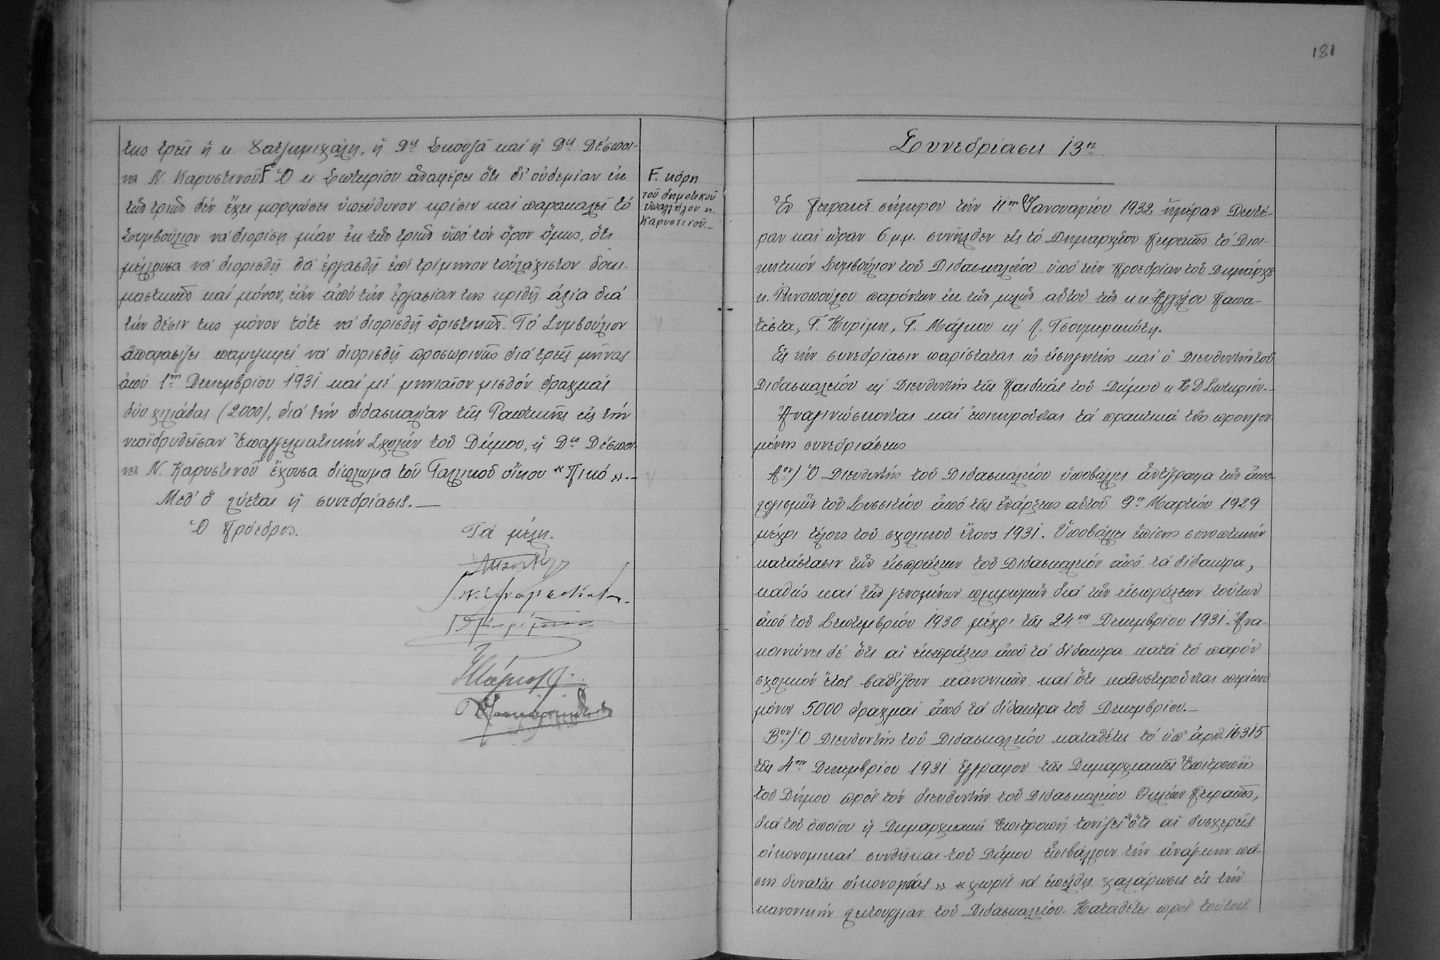 της τρεῖς ἡ κ. Χατζημιχάλη, ἡ Δνὶς Σκουζὲ καὶ ἡ Δνὶς Δέσποι-
να Ν. Καρυστινοῦ Γ Ὁ κ. Σωτηρίου ἀναφέρει ὅτι δι' οὐδεμίαν ἐκ
τῶν τριῶν δὲν ἔχει μορφώσει ὑπεύθυνον κρίσιν καὶ παρακαλεῖ τὸ
Συμβούλιον νὰ διορίσῃ μίαν ἐκ τῶν τριῶν ὑπὸ τὸν ὅρον ὅμως, ὅτι
μέλλουσα νὰ διορισθῇ θὰ ἐργασθῇ ἐπὶ τρίμηνον τοὐλάχιστον δοκι-
μαστικῶς καὶ μόνον, ἐὰν ἀπὸ τὴν ἐργασίαν της κριθῇ ἀξία διὰ
τὴν θέσιν της μόνον τότε νὰ διορισθῇ ὁριστικῶς. Τὸ Συμβούλιον
ἀποφασίζει παμψηφεὶ νὰ διορισθῇ προσωρινῶς διὰ τρεῖς μῆνας
ἀπὸ 1ης Δεκεμβρίου 1931 καὶ μὲ μηνιαῖον μισθὸν δραχμὰς
δύο χιλιάδας (2000), διὰ τὴν διδασκαλίαν τῆς Ῥαπτικῆς εἰς τὴν
νεοϊδρυθεῖσαν Ἐπαγγελματικὴν Σχολὴν τοῦ Δήμου, ἡ Δὶς Δέσποι-
να Ν. Καρυστινοῦ ἔχουσα δίπλωμα τοῦ Γαλλικοῦ οἴκου "Πικό".-
Μεθ' ὃ λύεται ἡ συνεδρίασις.—
Ὁ Πρόεδρος. Τὰ μέλη.
Γ. κόρη
τοῦ δημοτικοῦ
ὑπαλλήλου κ.
Καρυστινοῦ.—
181
Συνεδρίασις 13η
Ἐν Πειραιεῖ σήμερον τὴν 11ην Ἰανουαρίου 1932 ἡμέραν Δευτέ-
ραν καὶ ὥραν 6 μ.μ. συνῆλθεν εἰς τὸ Δημαρχεῖον Πειραιῶς τὸ Διοι-
κητικὸν Συμβούλιον τοῦ Διδασκαλείου ὑπὸ τὴν προεδρίαν τοῦ Δημάρχου
κ. Ρινοπούλου παρόντων ἐκ τῶν μελῶν αὐτοῦ τῶν κ.κ. Ἀγγέλου Παπα-
τέστα, Γ. Κυρίμη, Γ. Μάλμου κ Λ. Τσουμερκιώτη.
Εἰς τὴν συνεδρίασιν παρίσταται ὡς εἰσηγητὴς καὶ ὁ Διευθυντὴς τοῦ
Διδασκαλείου κ Διευθυντὴς τῆς Παιδείας τοῦ Δήμου κ. Κ. Δ. Σωτηρίου.—
Ἀναγινώσκονται καὶ ἐπικυροῦνται τὰ πρακτικὰ τῆς προηγου-
μένης συνεδριάσεως.
Αον) Ὁ Διευθυντὴς τοῦ Διδασκαλείου ὑποβάλλει ἀντίγραφα τῶν ἀπο-
λογισμῶν τοῦ Συσσιτίου ἀπὸ τῆς ἐνάρξεως αὐτοῦ 9ης Μαρτίου 1929
μέχρι τέλους τοῦ σχολικοῦ ἔτους 1931. Ὑποβάλλει ἐπίσης συνοπτικὴν
κατάστασιν τῶν εἰσπράξεων τοῦ Διδασκαλείου ἀπὸ τὰ δίδακτρα,
καθὼς καὶ τῶν γενομένων πληρωμῶν διὰ τῶν εἰσπράξεων τούτων
ἀπὸ τοῦ Σεπτεμβρίου 1930 μέχρι τῆς 24ης Δεκεμβρίου 1931. Ἀνα-
κοινώνει δὲ ὅτι αἱ εἰσπράξεις ἀπὸ τὰ δίδακτρα κατὰ τὸ παρὸν
σχολικὸν ἔτος βαδίζουν κανονικῶς καὶ ὅτι καθυστεροῦνται περίπου
μόνον 5000 δραχμαὶ ἀπὸ τὰ δίδακτρα τοῦ Δεκεμβρίου.—
Βον) Ὁ Διευθυντὴς τοῦ Διδασκαλείου καταθέτει τὸ ὑπ' ἀριθ. 16315
τῆς 4ης Δεκεμβρίου 1931 ἔγγραφον τῆς Δημαρχιακῆς Ἐπιτροπῆς
τοῦ Δήμου πρὸς τὸν διευθυντὴν τοῦ Διδασκαλείου Θηλέων Πειραιῶς,
διὰ τοῦ ὁποίου ἡ Δημαρχιακὴ Ἐπιτροπὴ τονίζει "ὅτι αἱ δυσχερεῖς
οἰκονομικαὶ συνθῆκαι τοῦ Δήμου ἐπιβάλλουν τὴν ἀνάγκην πά-
σης δυνατῆς οἰκονομίας" "χωρὶς νὰ ἐπέλθῃ χαλάρωσις εἰς τὴν
κανονικὴν λειτουργίαν τοῦ Διδασκαλείου. Καταθέτει πρὸς τούτοις